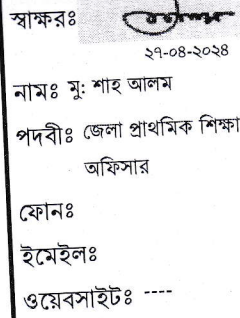 স্বাক্ষরঃ
২৭-০৪-২০২৪
নামঃ মু: শাহ আলম
পদবীঃ জেলা প্রাথমিক শিক্ষা
অফিসার
ফোনঃ
ইমেইলঃ
ওয়েবসাইটঃ ----